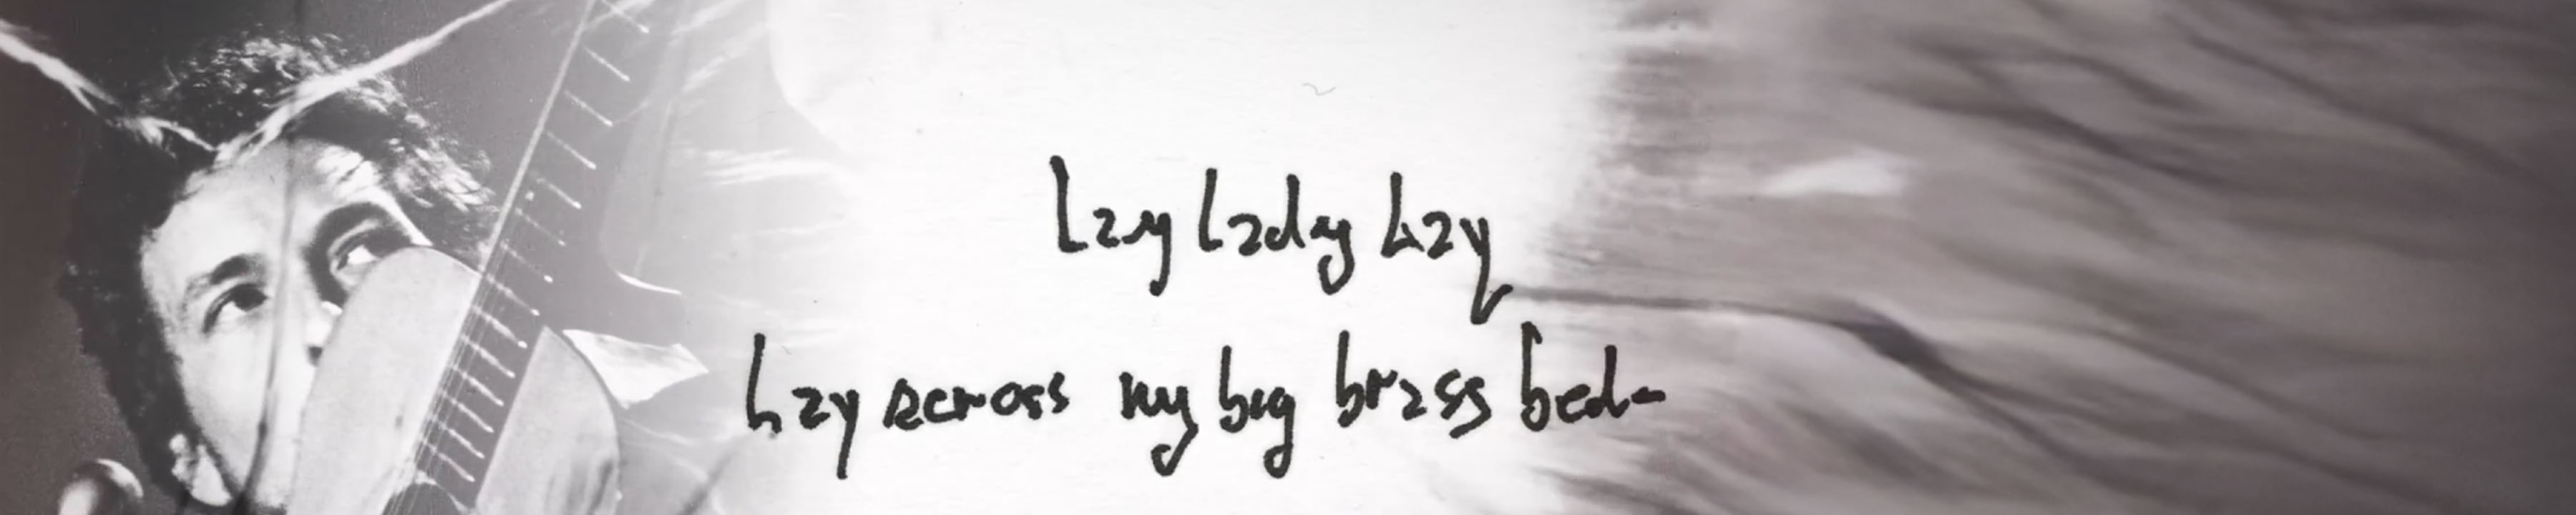 Lay lady Lay
Lay across my big brass bed-